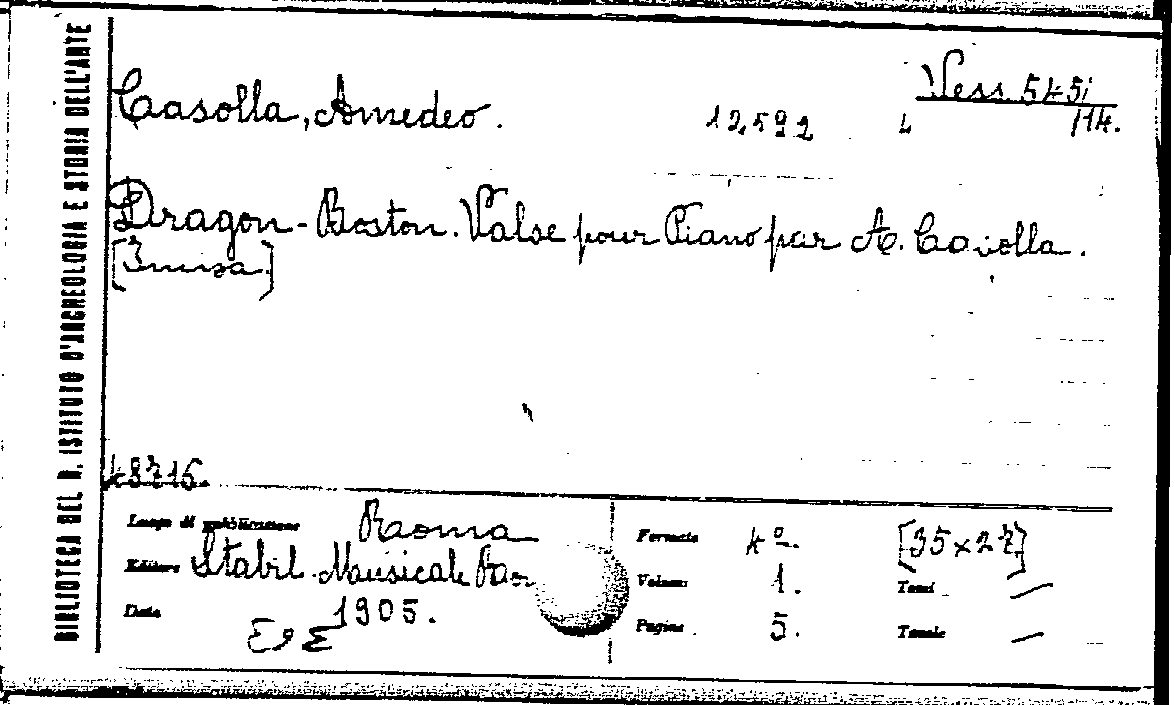 BIBLIOTECA DEL R. ISTITUTO D'ARCHEOLOGIA E STORIA DELL'ARTE
Vess. 5451
Casolla, Amedeo.
12,592
L
114.
Dragon - Boston. Valse pour Piano par A. Casolla.
[Musica]
48716.
Luogo di pubblicazione Roma
Formato 4º.
[35 x 27]
Editore Stabil. Musicale
Volumi 1.
Tomi —
Data 1905.
Pagine 5.
Tavole —